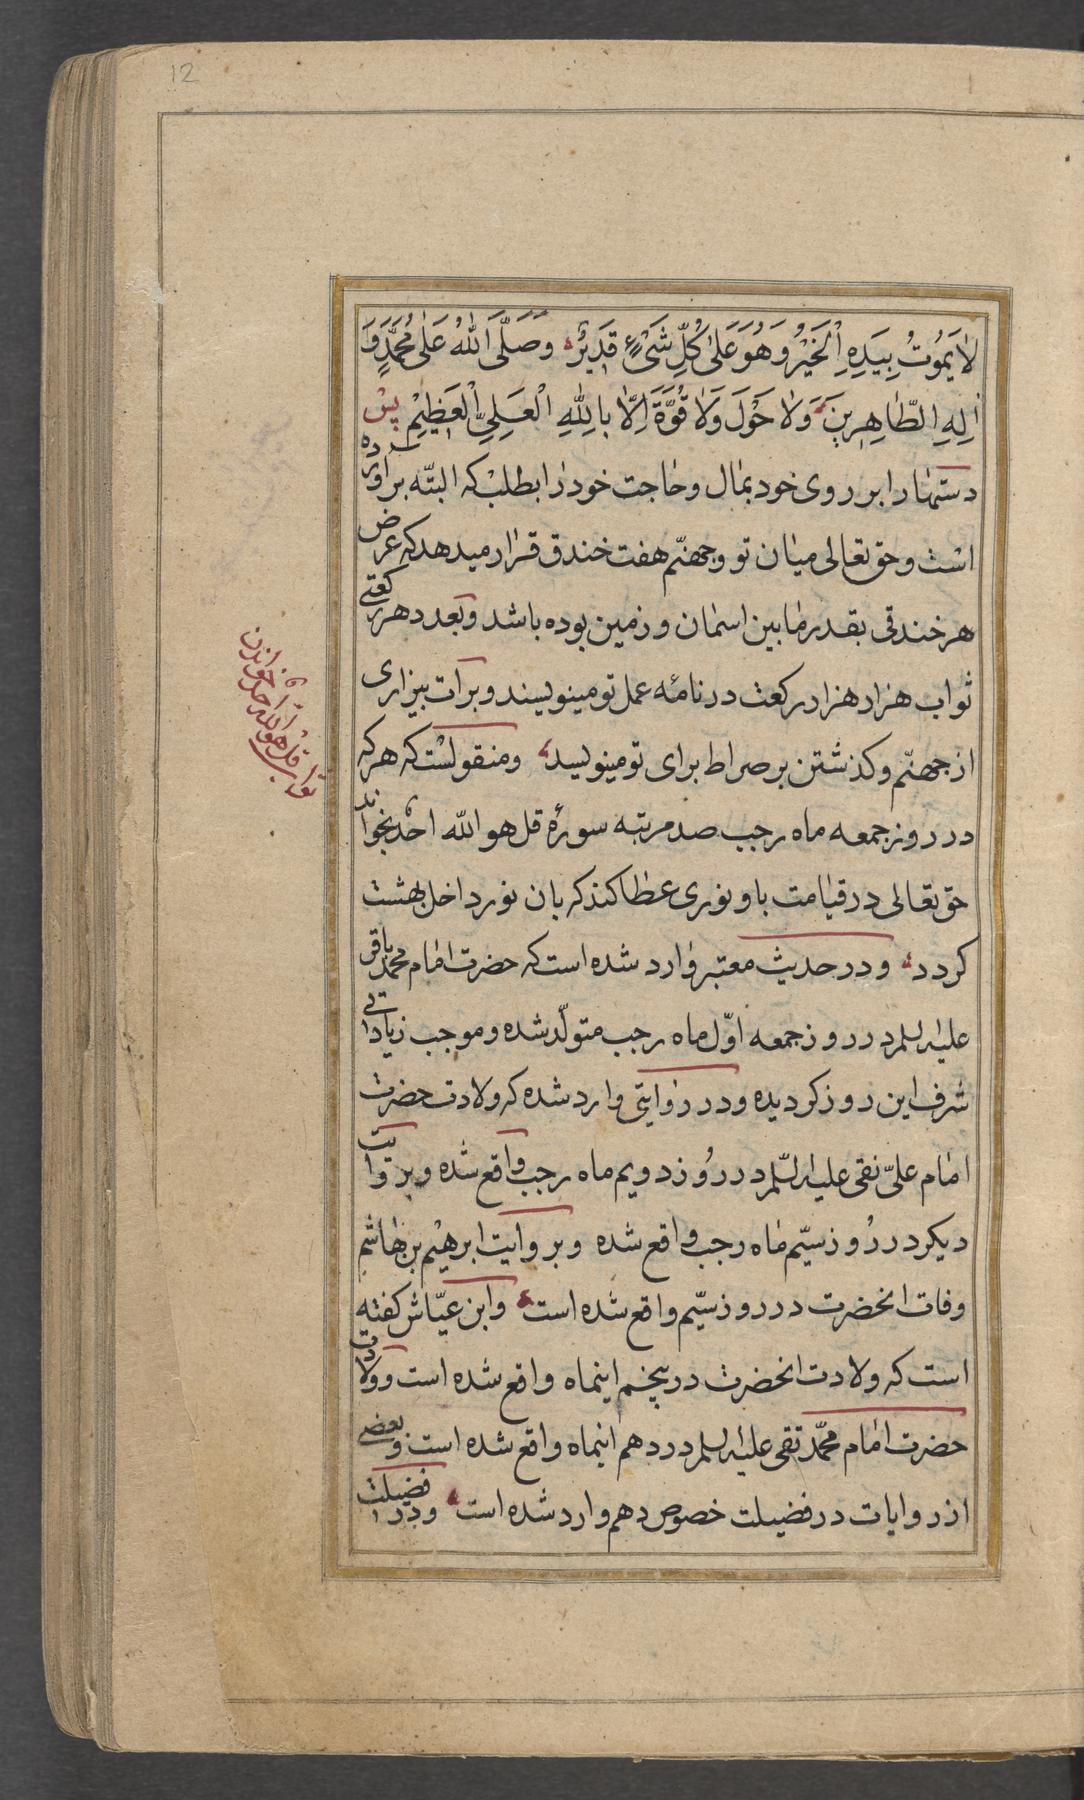 12
لَا يَمُوتُ بِيَدِهِ الْخَيْرُ وَهُوَ عَلَىٰ كُلِّ شَيْءٍ قَدِيرٌ وَصَلَّى اللّٰهُ عَلٰى مُحَمَّدٍ وَ
اٰلِهِ الطّاهِرِينَ وَلَا حَوْلَ وَلَا قُوَّةَ اِلَّا بِاللّٰهِ الْعَلِيِّ الْعَظِيْمِ پس
دستها را بر روی خود بمال و حاجت خود را بطلب که البتّه بر آورده
است و حق تعالی میان تو و جهنّم هفت خندق قرار میدهد که عرض
هر خندقی بقدر مابین اسمان و زمین بوده باشد و بعدد هر رکعتی
ثواب هزار هزار رکعت در نامهٔ عمل تو مینویسند و برات بیزاری
از جهنّم و کذشتن بر صراط برای تو مینویسد و منقولست که هر که
در روز جمعه ماه رجب صد مرتبه سورهٔ قل هو اللّه احد بخواند
حق تعالی در قیامت باو نوری عطا کند که بان نور داخل بهشت
کردد و در حدیث معتبر وارد شده است که حضرت امام محمد باقر
علیه السلم در روز جمعه اوّل ماه رجب متولّد شده و موجب زیادتی
شرف این روز کردیده و در روایتی وارد شده که ولادت حضرت
امام علیّ نقی علیه السّلم در روز دویم ماه رجب واقع شده و بروایت
دیکر در روز سیّم ماه رجب واقع شده و بروایت ابرهیم بن هاشم
وفات انحضرت در روز سیّم واقع شده است و ابن عیّاش کفته
است که ولادت انحضرت در پنجم اینماه واقع شده است و ولادت
حضرت امام محمّد تقی علیه السلم در دهم اینماه واقع شده است و بعضی
از روایات در فضیلت خصوص دهم وارد شده است و در فضیلت
ثواب قل هو اللّه احد خواندن